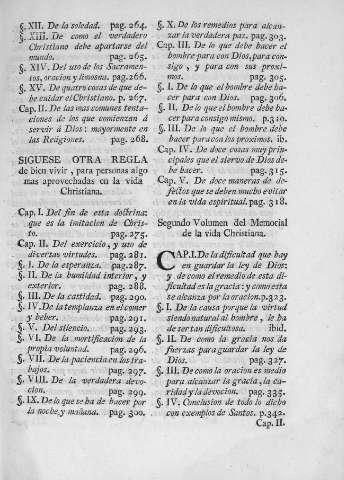 §. XII. De la soledad. pag. 264.
§. XIII. De como el verdadero
Christiano debe apartarse del
mundo. pag. 265.
§. XIV. Del uso de los Sacramen-
tos, oracion, y limosna. pag. 266.
§. XV. De quatro cosas de que de-
be cuidar el Christiano. p. 267.
Cap. II. De las mas comunes tenta-
ciones de los que comienzan á
servir á Dios: mayormente en
las Religiones. pag. 268.
SIGUESE OTRA REGLA
de bien vivir, para personas algo
mas aprovechadas en la vida
Christiana.
Cap. I. Del fin de esta doctrina:
que es la imitacion de Chris-
to. pag. 275.
Cap. II. Del exercicio, y uso de
diversas virtudes. pag. 281.
§. I. De la esperanza. pag. 287.
§. II. De la humildad interior, y
exterior. pag. 288.
§. III. De la castidad. pag. 290.
§. IV. De la templanza en el comer
y beber. pag. 291.
§. V. Del silencio. pag. 293.
§. VI. De la mortificacion de la
propia voluntad. pag. 296.
§. VII. De la paciencia en los tra-
bajos. pag. 297.
§. VIII. De la verdadera devo-
cion. pag. 299.
§. IX. De lo que se ha de hacer por
la noche, y mañana. pag. 300.
§. X. De los remedios para alcan-
zar la verdadera paz. pag. 303.
Cap. III. De lo que debe hacer el
hombre para con Dios, para con-
sigo, y para con sus proxi-
mos. pag. 305.
§. I. De lo que el hombre debe ha-
cer para con Dios. pag. 306.
§. II. De lo que el hombre debe ha-
cer para consigo mismo. p. 310.
§. III. De lo que el hombre debe
hacer para con los proximos. ib.
Cap. IV. De doce cosas muy prin-
cipales que el siervo de Dios de-
be hacer. pag. 315.
Cap. V. De doce maneras de de-
fectos que se deben mucho evitar
en la vida espiritual. pag. 318.
Segundo Volumen del Memorial
de la vida Christiana.
CAP. I. De la dificultad que hay
en guardar la ley de Dios;
y de como el remedio de esta di-
ficultad es la gracia: y como esta
se alcanza por la oracion. p. 323.
§. I. De la causa porque la virtud
siendo natural al hombre, le ha
de ser tan dificultosa. ibid.
§. II. De como la gracia nos da
fuerzas para guardar la ley de
Dios. pag. 327.
§. III. De como la oracion es medio
para alcanzar la gracia, la ca-
ridad y la devocion. pag. 335.
§. IV. Conclusion de todo lo dicho
con exemplos de Santos. p. 342.
Cap. II.